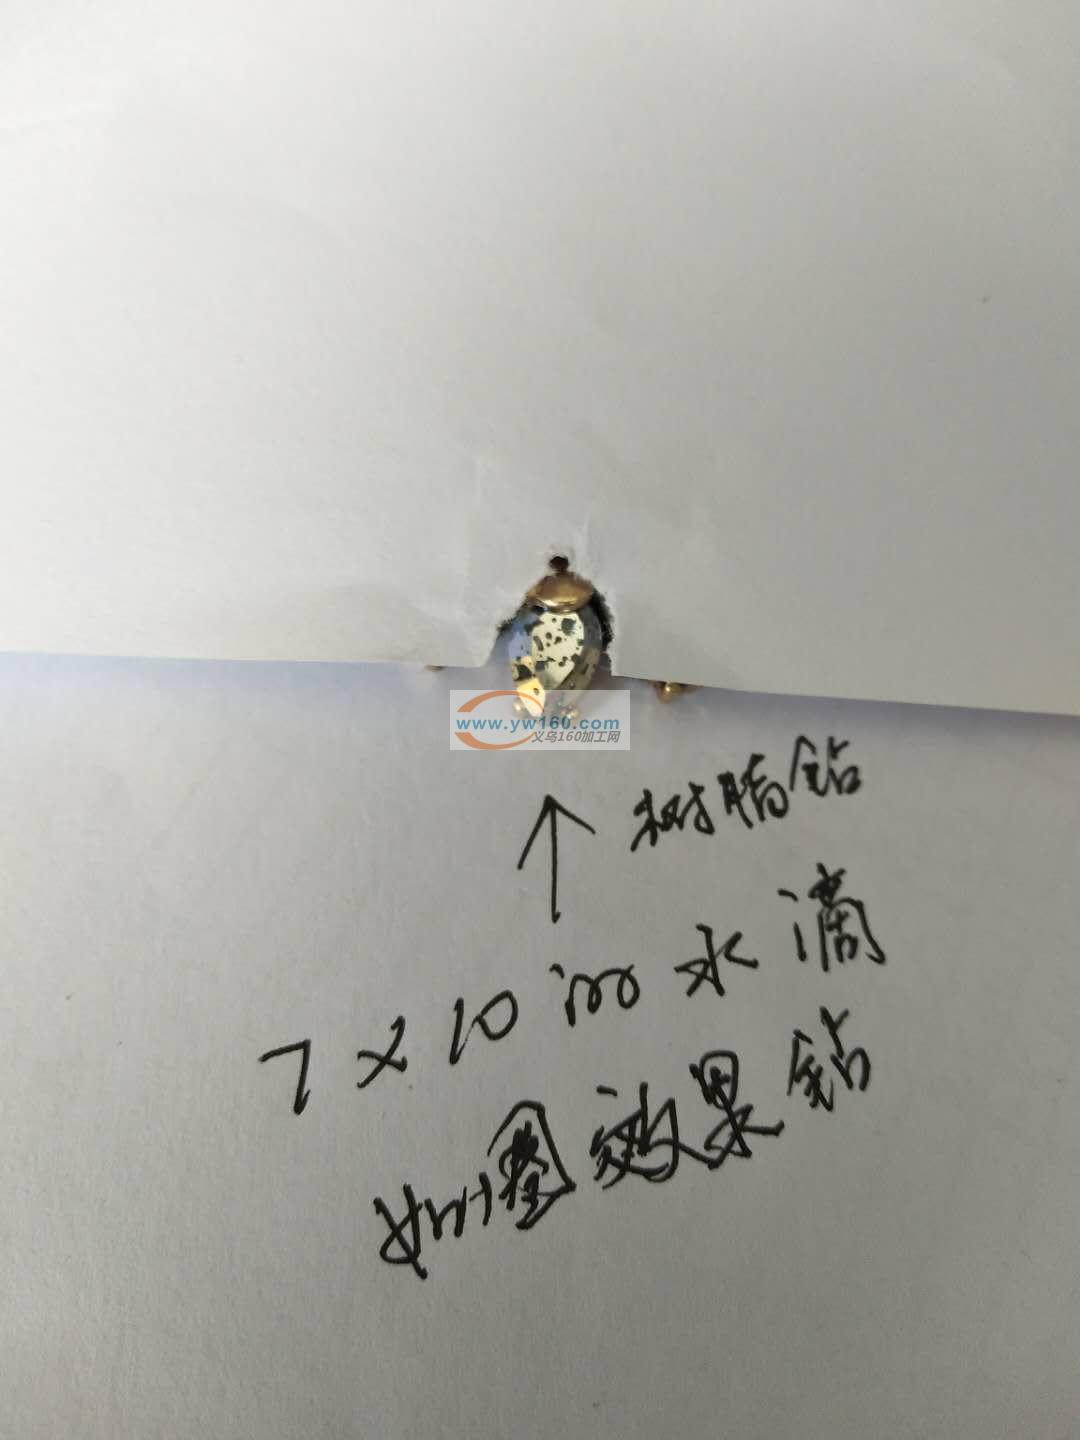 www.yw160.com
义乌160加工网
树脂钻
7×10mm水滴
如图效果钻